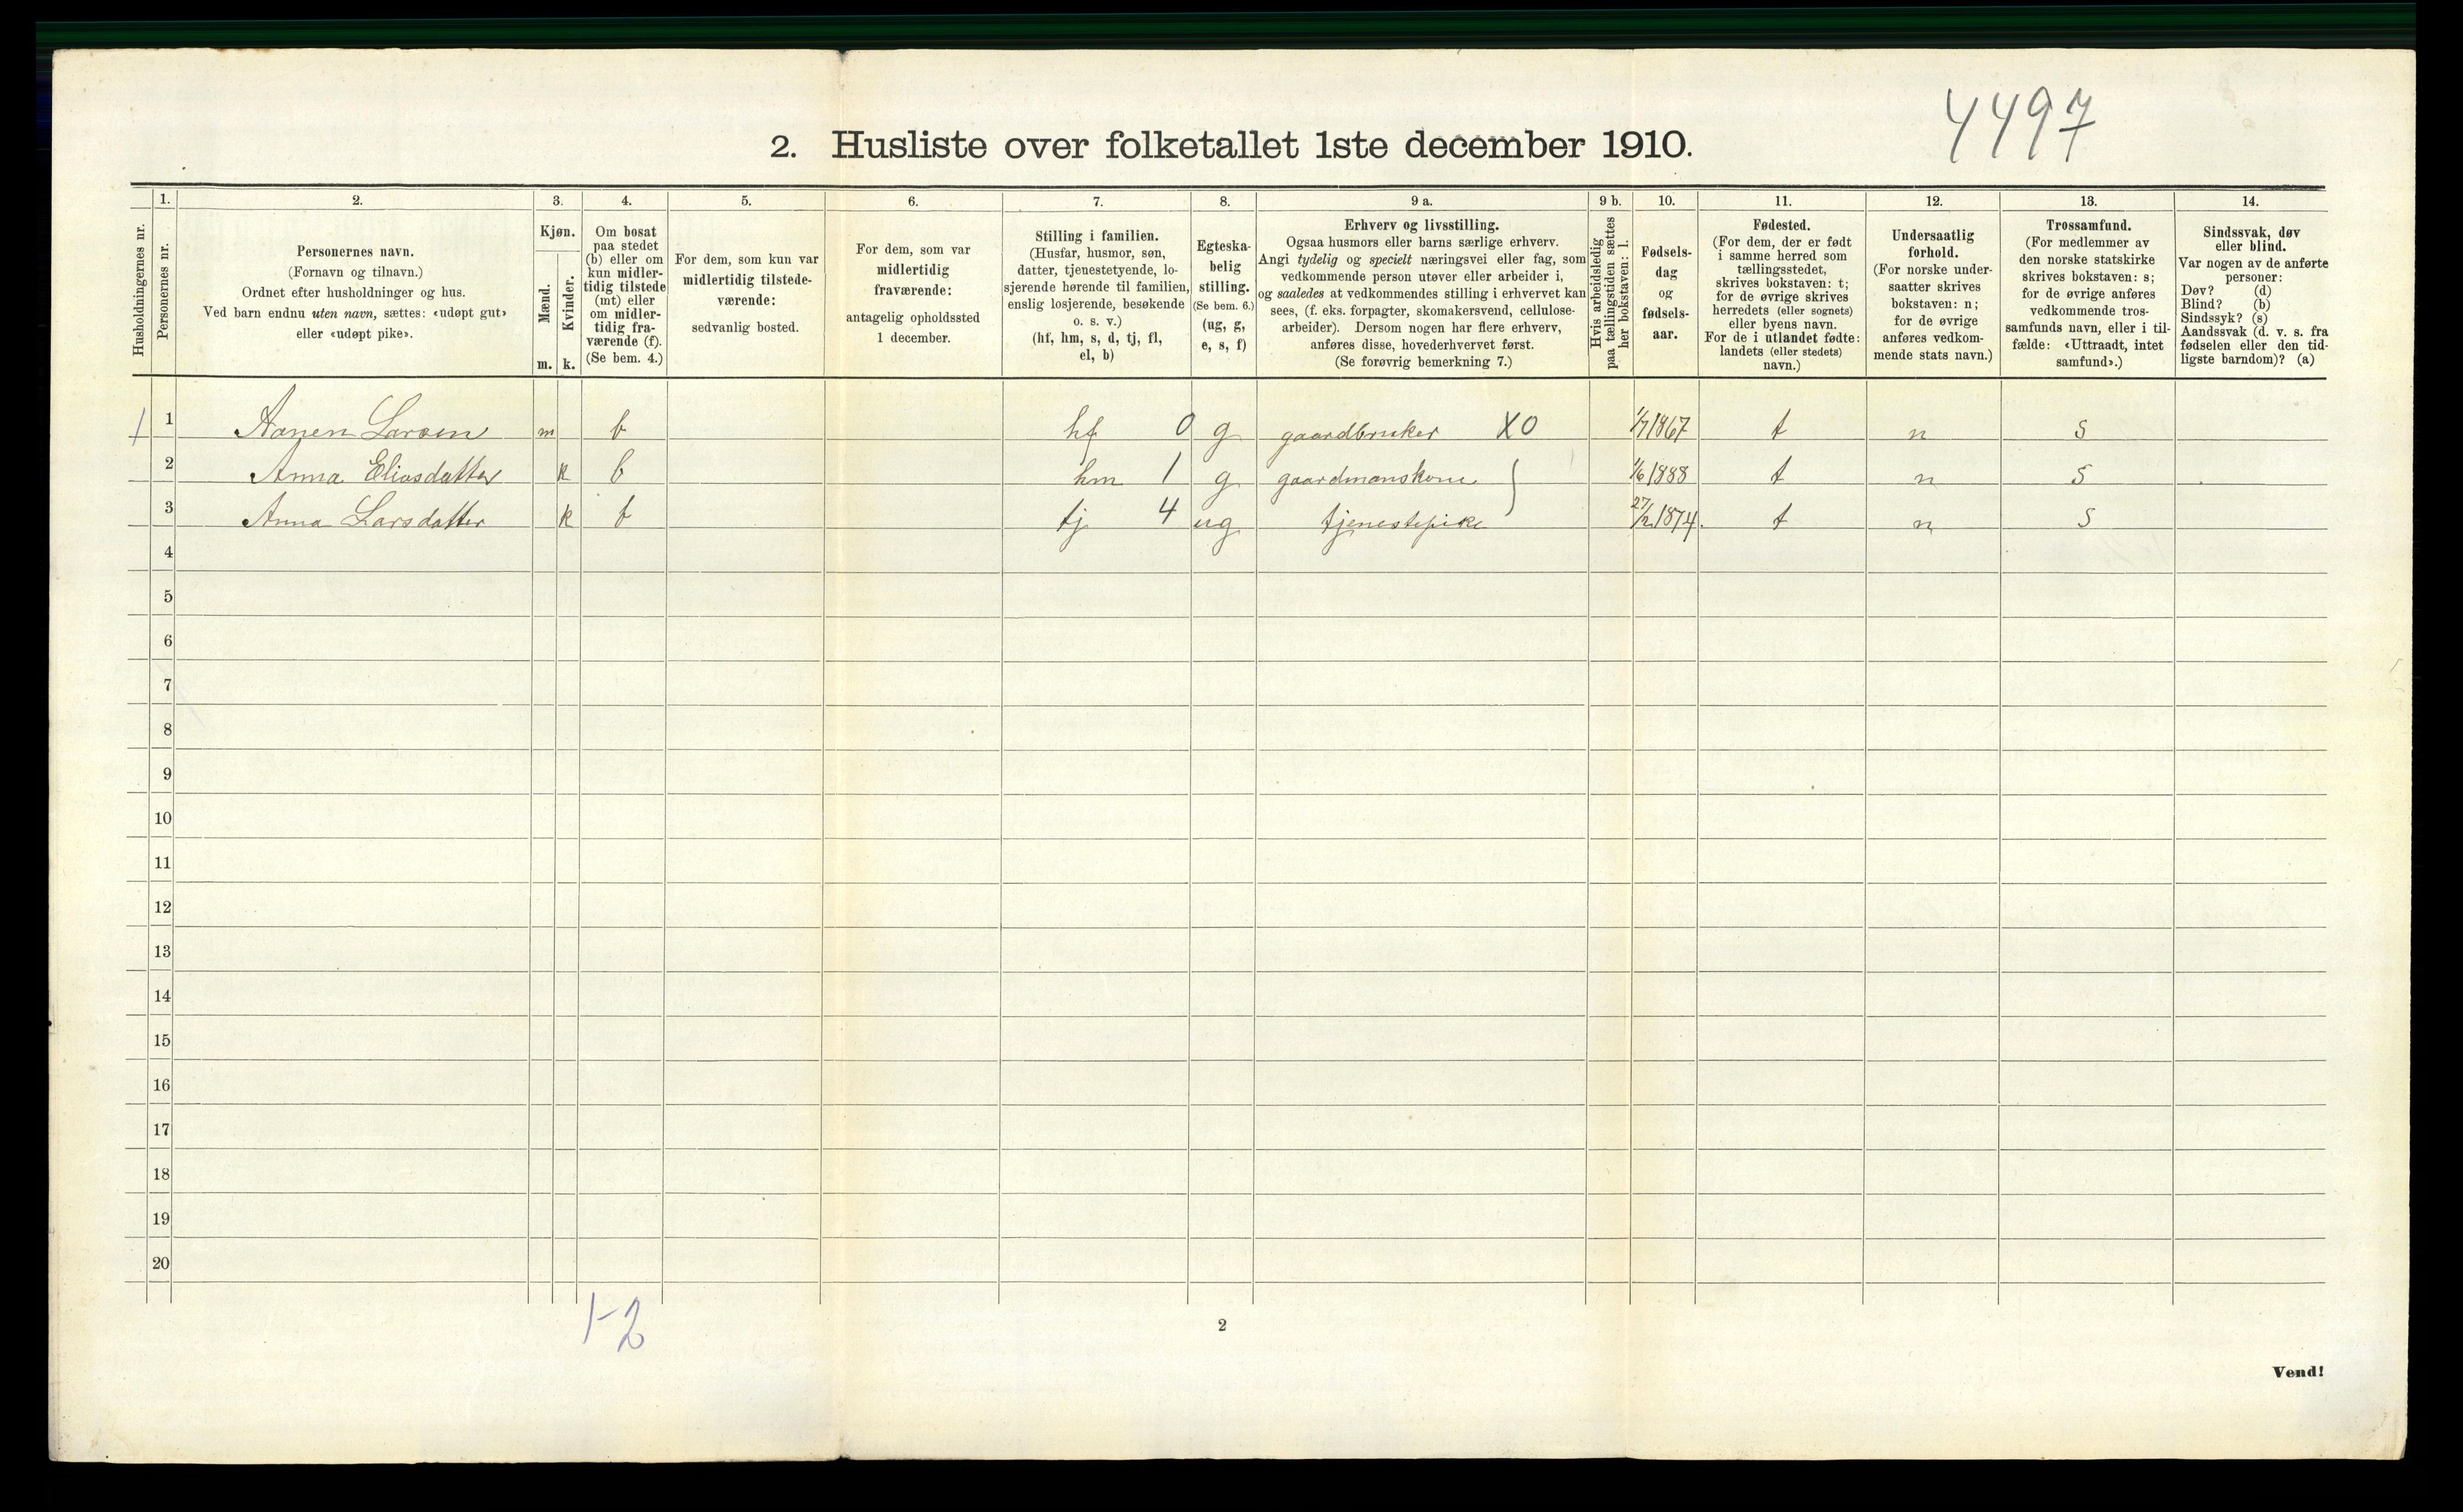 4497
2. Husliste over folketallet 1ste december 1910.
Husholdningernes nr.
1.
Personernes nr.
2.
Personernes navn.
(Fornavn og tilnavn.)
Ordnet efter husholdninger og hus.
Ved barn endnu uten navn, sættes: «udøpt gut»
eller «udøpt pike».
3.
Kjøn.
Mænd.
m.
Kvinder.
k.
4.
Om bosat
paa stedet
(b) eller om
kun midler-
tidig tilstede
(mt) eller
om midler-
tidig fra-
værende (f).
(Se bem. 4.)
5.
For dem, som kun var
midlertidig tilstede-
værende:
sedvanlig bosted.
6.
For dem, som var
midlertidig
fraværende:
antagelig opholdssted
1 december.
7.
Stilling i familien.
(Husfar, husmor, søn,
datter, tjenestetyende, lo-
sjerende hørende til familien,
enslig losjerende, besøkende
o. s. v.)
(hf, hm, s, d, tj, fl,
el, b)
8.
Egteska-
belig
stilling.
(Se bem. 6.)
(ug, g,
e, s, f)
9 a.
Erhverv og livsstilling.
Ogsaa husmors eller barns særlige erhverv.
Angi tydelig og specielt næringsvei eller fag, som
vedkommende person utøver eller arbeider i,
og saaledes at vedkommendes stilling i erhvervet kan
sees, (f. eks. forpagter, skomakersvend, cellulose-
arbeider). Dersom nogen har flere erhverv,
anføres disse, hovederhvervet først.
(Se forøvrig bemerkning 7.)
9 b.
Hvis arbeidsledig
paa tællingstiden sættes
her bokstaven: l.
10.
Fødsels-
dag
og
fødsels-
aar.
11.
Fødested.
(For dem, der er født
i samme herred som
tællingsstedet,
skrives bokstaven: t;
for de øvrige skrives
herredets (eller sognets)
eller byens navn.
For de i utlandet fødte:
landets (eller stedets)
navn.)
12.
Undersaatlig
forhold.
(For norske under-
saatter skrives
bokstaven: n;
for de øvrige
anføres vedkom-
mende stats navn.)
13.
Trossamfund.
(For medlemmer av
den norske statskirke
skrives bokstaven: s;
for de øvrige anføres
vedkommende tros-
samfunds navn, eller i til-
fælde: «Uttraadt, intet
samfund».)
14.
Sindssvak, døv
eller blind.
Var nogen av de anførte
personer:
Døv? (d)
Blind? (b)
Sindssyk? (s)
Aandssvak (d. v. s. fra
fødselen eller den tid-
ligste barndom)? (a)
1 1 Aanen Larsen m b hf 0 g gaardbruker X0 1/7 1867 t n S
2 Anna Eliasdatter k b hm 1 g gaardmanskone 1/6 1888 t n S
3 Anna Larsdatter k b tj 4 ug tjenestepike 27/2 1874. t n S
4
5
6
7
8
9
10
11
12
13
14
15
16
17
18
19
20
1-2
2
Vend!